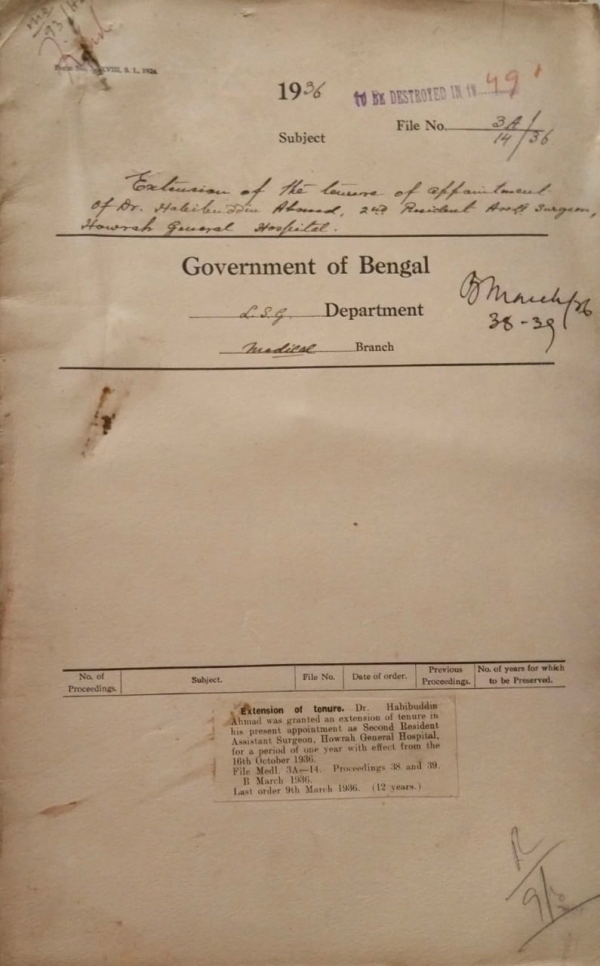 1936
TO BE DESTROYED IN 19 49
Subject
File No. 3A/14/36
Extension of the tenure of appointment
of Dr. Habibuddin Ahmad, 2nd Resident Asstt Surgeon,
Howrah General Hospital.
Government of Bengal
L.S.G. Department
Medical Branch
B March/36
38-39
No. of Proceedings.
Subject.
File No.
Date of order.
Previous Proceedings.
No. of years for which to be Preserved.
Extension of tenure. Dr. Habibuddin
Ahmad was granted an extension of tenure in
his present appointment as Second Resident
Assistant Surgeon, Howrah General Hospital,
for a period of one year with effect from the
16th October 1936.
File Medl. 3A—14. Proceedings 38 and 39.
B March 1936.
Last order 9th March 1936. (12 years.)